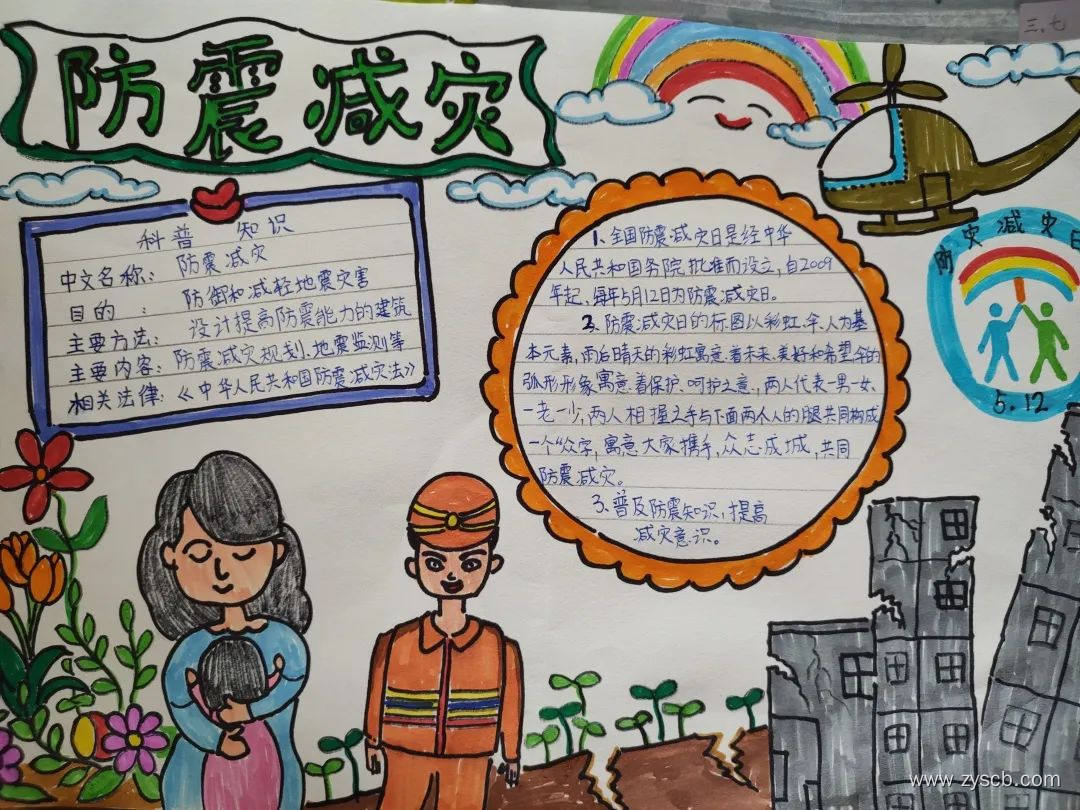 三、七
防震减灾
科普 知识
中文名称：防震减灾
目的：防御和减轻地震灾害
主要方法：设计提高防震能力的建筑
主要内容：防震减灾规划、地震监测等
相关法律：《中华人民共和国防震减灾法》
1、全国防震减灾日是经中华
人民共和国务院批准而设立，自2009
年起，每年5月12日为防震减灾日。
2、防震减灾日的标图以彩虹、伞、人为基
本元素，雨后晴天的彩虹寓意着未来、美好和希望，伞的
弧形形象寓意着保护、呵护之意，两人代表一男一女、
一老一少，两人相握之手与下面两个人的腿共同构成
一个“众”字，寓意大家携手，众志成城，共同
防震减灾。
3、普及防震知识，提高
减灾意识。
防灾减灾日
5.12
www.zyscb.com